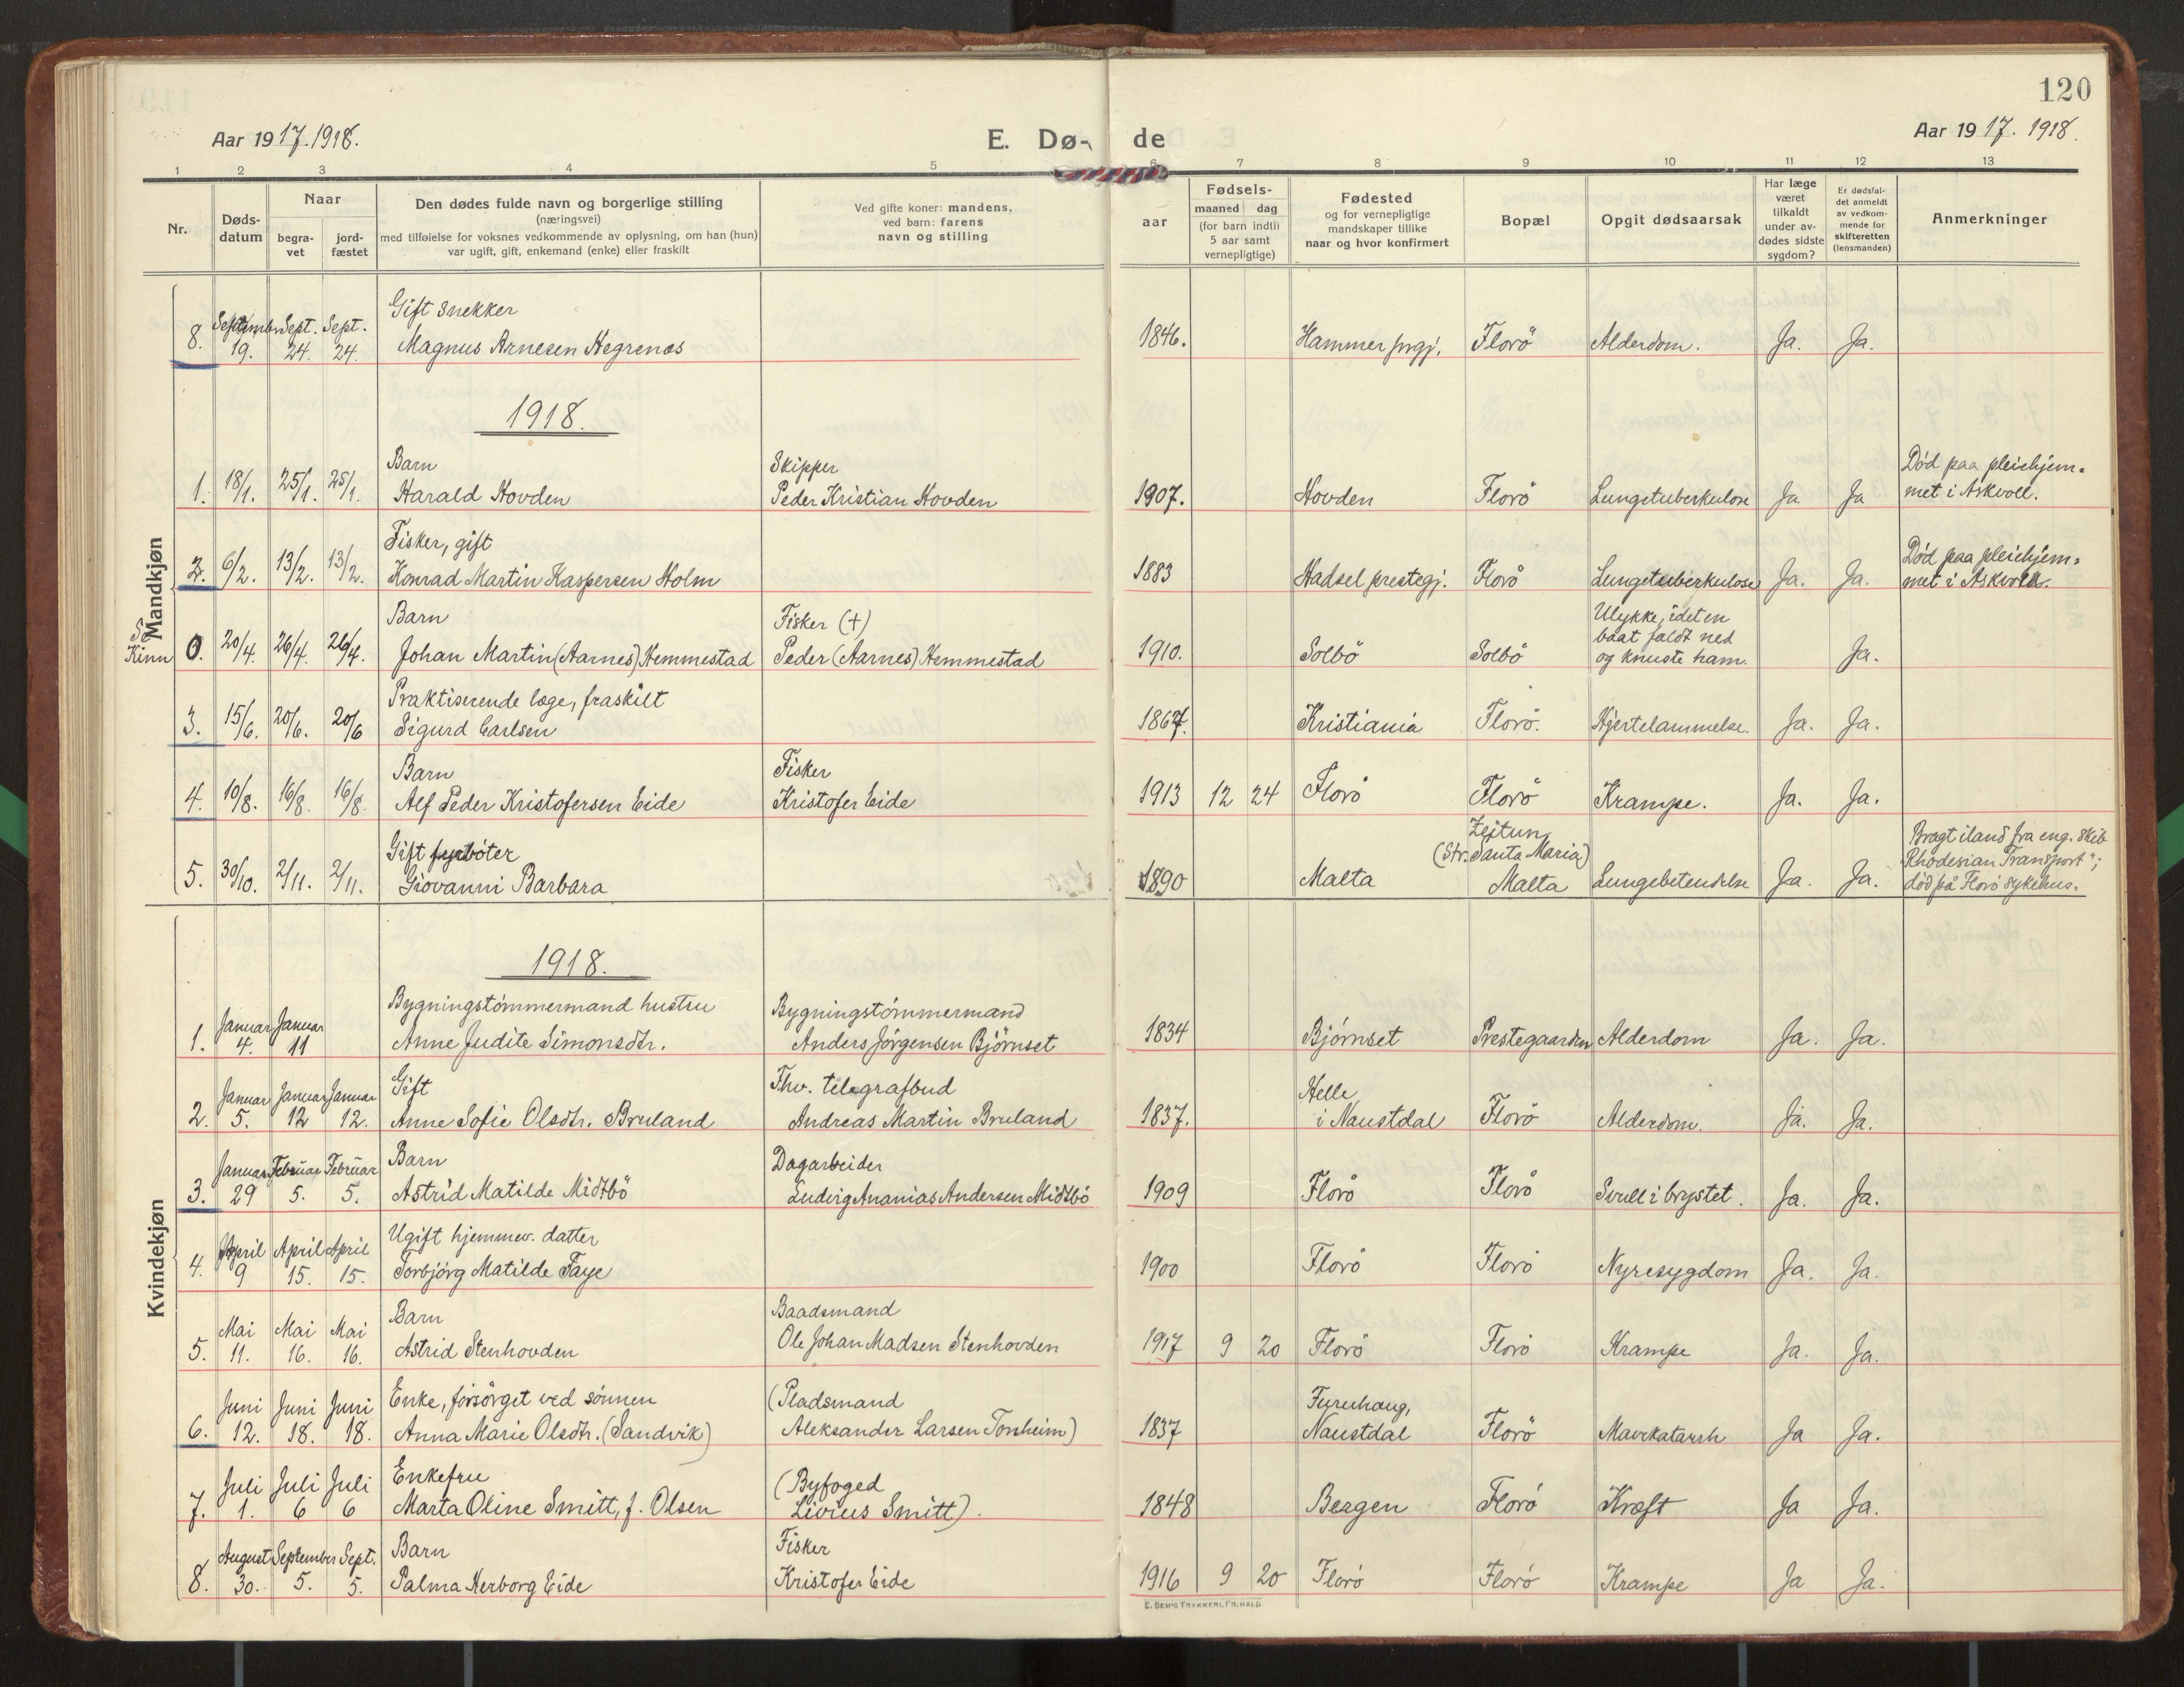 120
Aar 1917. 1918.
E. Dø- de
Aar 1917. 1918.
1 2 3 4 5 6 7 8 9 10 11 12 13
Nr.
Døds-
datum
Naar
begra-
vet
jord-
fæstet
Den dødes fulde navn og borgerlige stilling
(næringsvei)
med tilføielse for voksnes vedkommende av oplysning, om han (hun)
var ugift, gift, enkemand (enke) eller fraskilt
Ved gifte koner: mandens,
ved barn: farens
navn og stilling
aar
Fødsels-
maaned dag
(for barn indtil
5 aar samt
vernepligtige)
Fødested
og for vernepligtige
mandskaper tillike
naar og hvor konfirmert
Bopæl
Opgit dødsaarsak
Har læge
været
tilkaldt
under av-
dødes sidste
sygdom?
Er dødsfal-
det anmeldt
av vedkom-
mende for
skifteretten
(lensmanden)
Anmerkninger
Mandkjøn
Gift snekker
8. September 19. Sept. 24. Sept. 24. Magnus Arnesen Hegrenæs 1846. Hammer prgj. Florö Alderdom. Ja. Ja.
1918.
Barn Skipper Död paa pleiehjem-
1. 18/1. 25/1. 25/1. Harald Hovden Peder Kristian Hovden 1907. Hovden Florö Lungetuberkulose Ja Ja met i Askvoll.
Fisker, gift Död paa pleiehjem-
2. 6/2. 13/2. 13/2. Konrad Martin Kaspersen Holm 1883 Hadsel prestegj. Florö Lungetuberkulose Ja. Ja. met i Askvoll.
Barn Fisker (+) Ulykke, idet en
baat faldt ned
Se
Kinn 0. 20/4. 26/4. 26/4. Johan Martin (Aarnes) Hemmestad Peder (Aarnes) Hemmestad 1910. Solbö Solbö og knuste ham. Ja.
Praktiserende læge, fraskilt
3. 15/6. 20/6. 20/6 Sigurd Carlsen 1867. Kristiania Florö. Hjertelammelse. Ja. Ja.
Barn Fisker
4. 10/8. 16/8. 16/8. Alf Peder Kristofersen Eide Kristofer Eide 1913 12 24 Florö Florö Krampe. Ja. Ja.
Gift fyrböter Zejtun, Bragt iland fra eng. skib
(Str. Santa Maria) "Rhodesian Transport";
5. 30/10. 2/11. 2/11. Giovanni Barbara 1890 Malta Malta Lungebetendelse Ja. Ja. död på Florö sykehus.
Kvindekjøn
1918.
Bygningstömmermand hustru Bygningstömmermand
1. Januar 4. Januar 11 Anne Judite Simonsdtr. Anders Jörgensen Björnset 1834 Björnset Prestegaarden Alderdom Ja. Ja.
Gift Fhv. telegrafbud Helle
2. Januar 5. Januar 12 Januar 12. Anne Sofie Olsdtr. Bruland Andreas Martin Bruland 1837. i Naustdal Florö Alderdom. Ja. Ja.
Barn Dagarbeider
3. Januar 29 Februar 5. Februar 5. Astrid Matilde Midtbö Ludvig Ananias Andersen Midtbö 1909 Florö Florö Svull i brystet. Ja. Ja.
Ugift hjemmev. datter
4. April 9 April 15. April 15. Torbjörg Matilde Faye 1900 Florö Florö Nyresygdom Ja. Ja.
Barn Baadsmand
5. Mai 11. Mai 16. Mai 16. Astrid Stenhovden Ole Johan Madsen Stenhovden 1917 9 20 Florö Florö Krampe Ja. Ja.
Enke, forsörget ved sönnen (Pladsmand Furuhaug,
6. Juni 12. Juni 18. Juni 18. Anna Marie Olsdtr. (Sandvik) Aleksander Larsen Tonheim) 1837 Naustdal Florö Mavekatarrh Ja Ja.
Enkefru (Byfoged
7. Juli 1. Juli 6 Juli 6 Marta Oline Smitt, f. Olsen Livius Smitt). 1848 Bergen Florö Kræft Ja Ja.
Barn Fisker
8. August 30. September 5. Sept. 5. Palma Nerborg Eide Kristofer Eide 1916 9 20 Florö Florö Krampe Ja Ja.
E. SEM'S TRYKKERI, FR.HALD